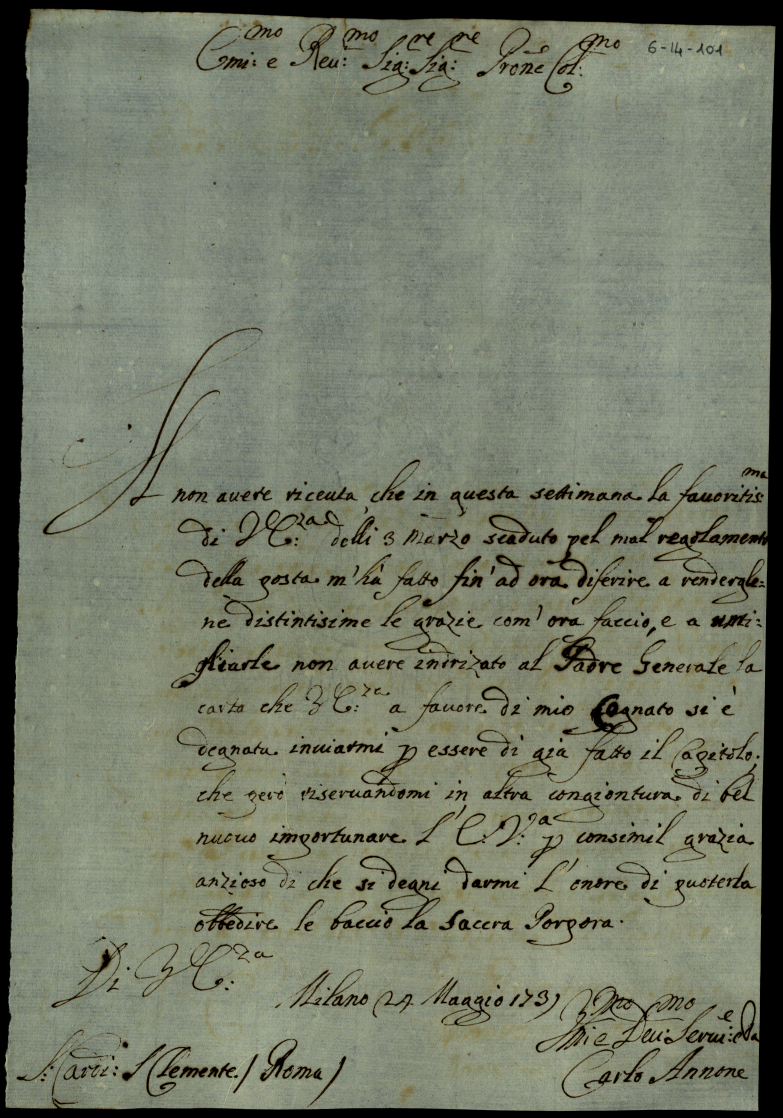 6-14-101
Emi:mo e Reu:mo Sig:re Sig:re Prone Col:mo
Il non auere riceuta, che in questa settimana la fauoritis:ma
di V. E:za delli 3 Marzo scaduto pel mal regolamento
della posta m'hà fatto fin' ad ora diferire a rendergle=
ne distintisime le grazie com' ora faccio, e a umi:
gliarle non auere indrizato al Padre Generale la
carta che V. E:za a fauore di mio Cognato si è
degnata inuiarmi p essere di già fatto il Capitolo;
che però riseruandomi in altra congiontura di bel
nuouo importunare l' E. V:a p consimil grazia
anzioso di che si degni darmi l' onore di puoterla
obbedire le baccio la saccra Porpora.
Di V. E:za
Milano 24 Maggio 173
Deu: Seru:e
S: Cardi: S Clemente / Roma /
Carlo Annone